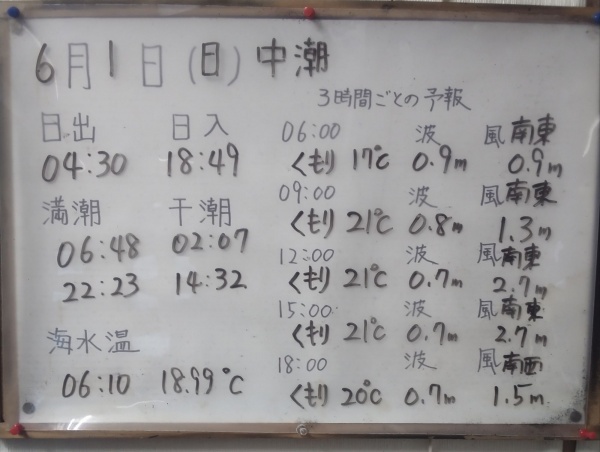 6月1日(日)中潮
3時間ごとの予報
日出 日入
04:30 18:49
満潮 干潮
06:48 02:07
22:23 14:32
海水温
06:10 18.99℃
06:00 波 風南東
くもり 17℃ 0.9m 0.9m
09:00 波 風南東
くもり 21℃ 0.8m 1.3m
12:00 波 風南東
くもり 21℃ 0.7m 2.7m
15:00 波 風南東
くもり 21℃ 0.7m 2.7m
18:00 波 風南西
くもり 20℃ 0.7m 1.5m